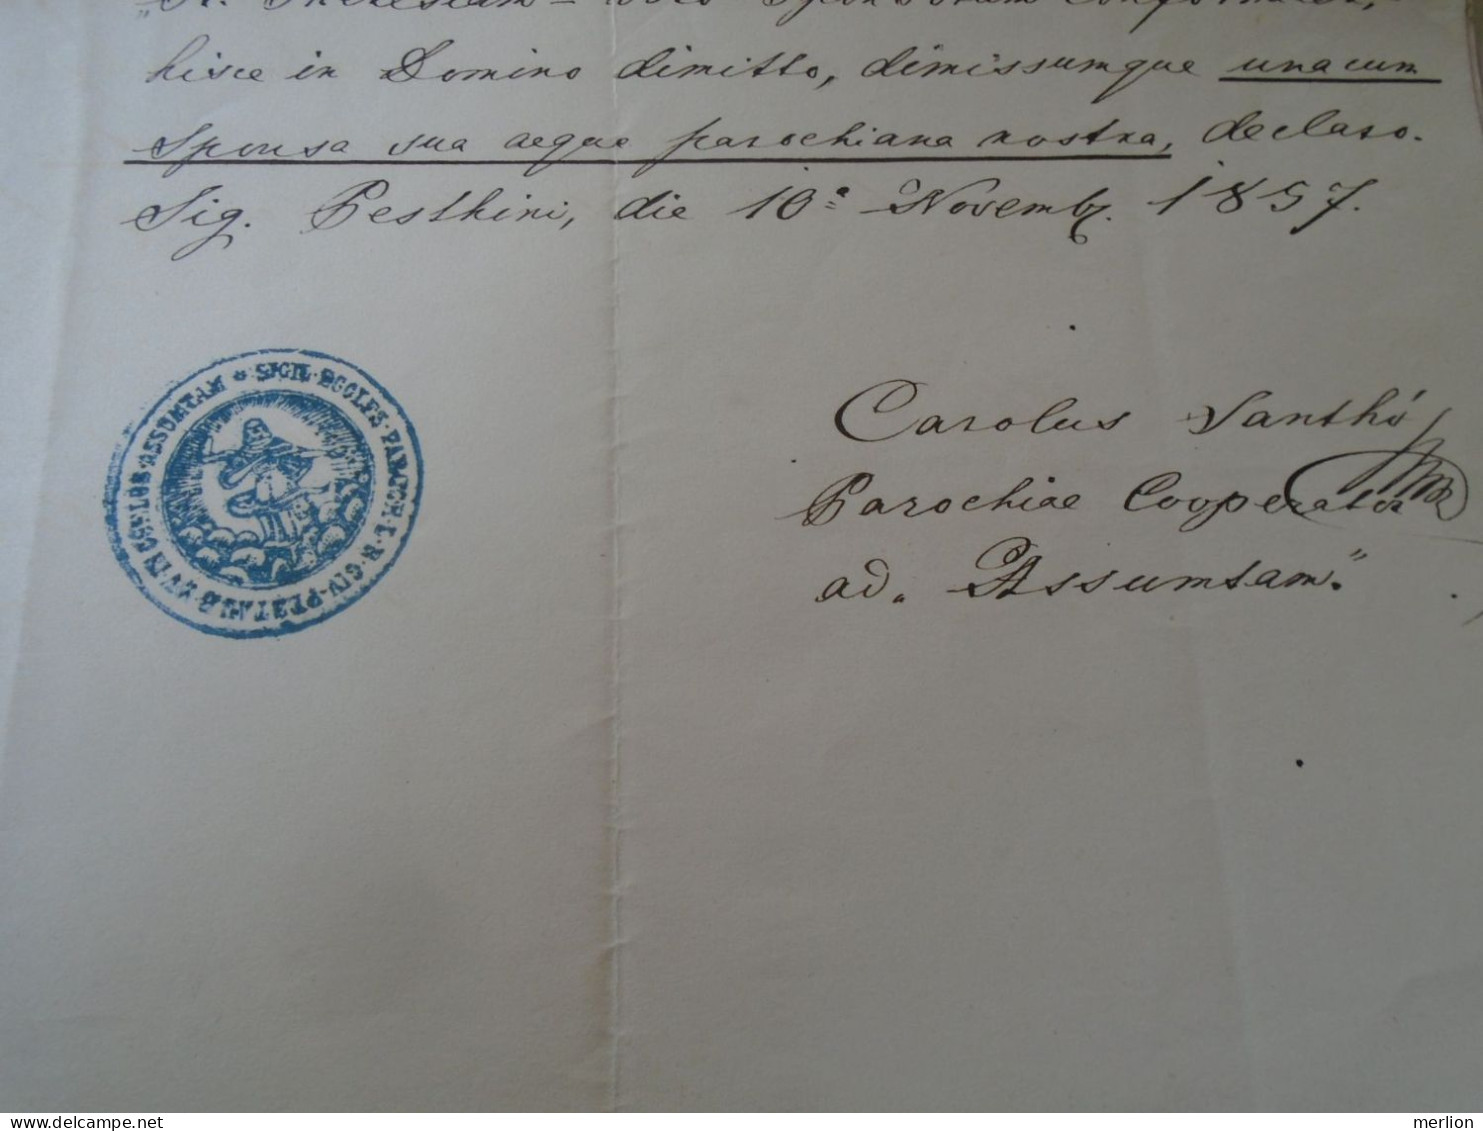 hisce in Domino dimitto, dimissumque unacum
Sponsa sua aeque parochiana nostra, declaro.
Sig. Pesthini, die 10ª Novembr. 1857.
SIGIL·ECCLES·PAROCH·L·R·CIV·PEST
IN COELOS·ASSUMTAM
Carolus Santhó
Parochiae Cooperator
ad „Assumtam.”
delcampe.net
merlion